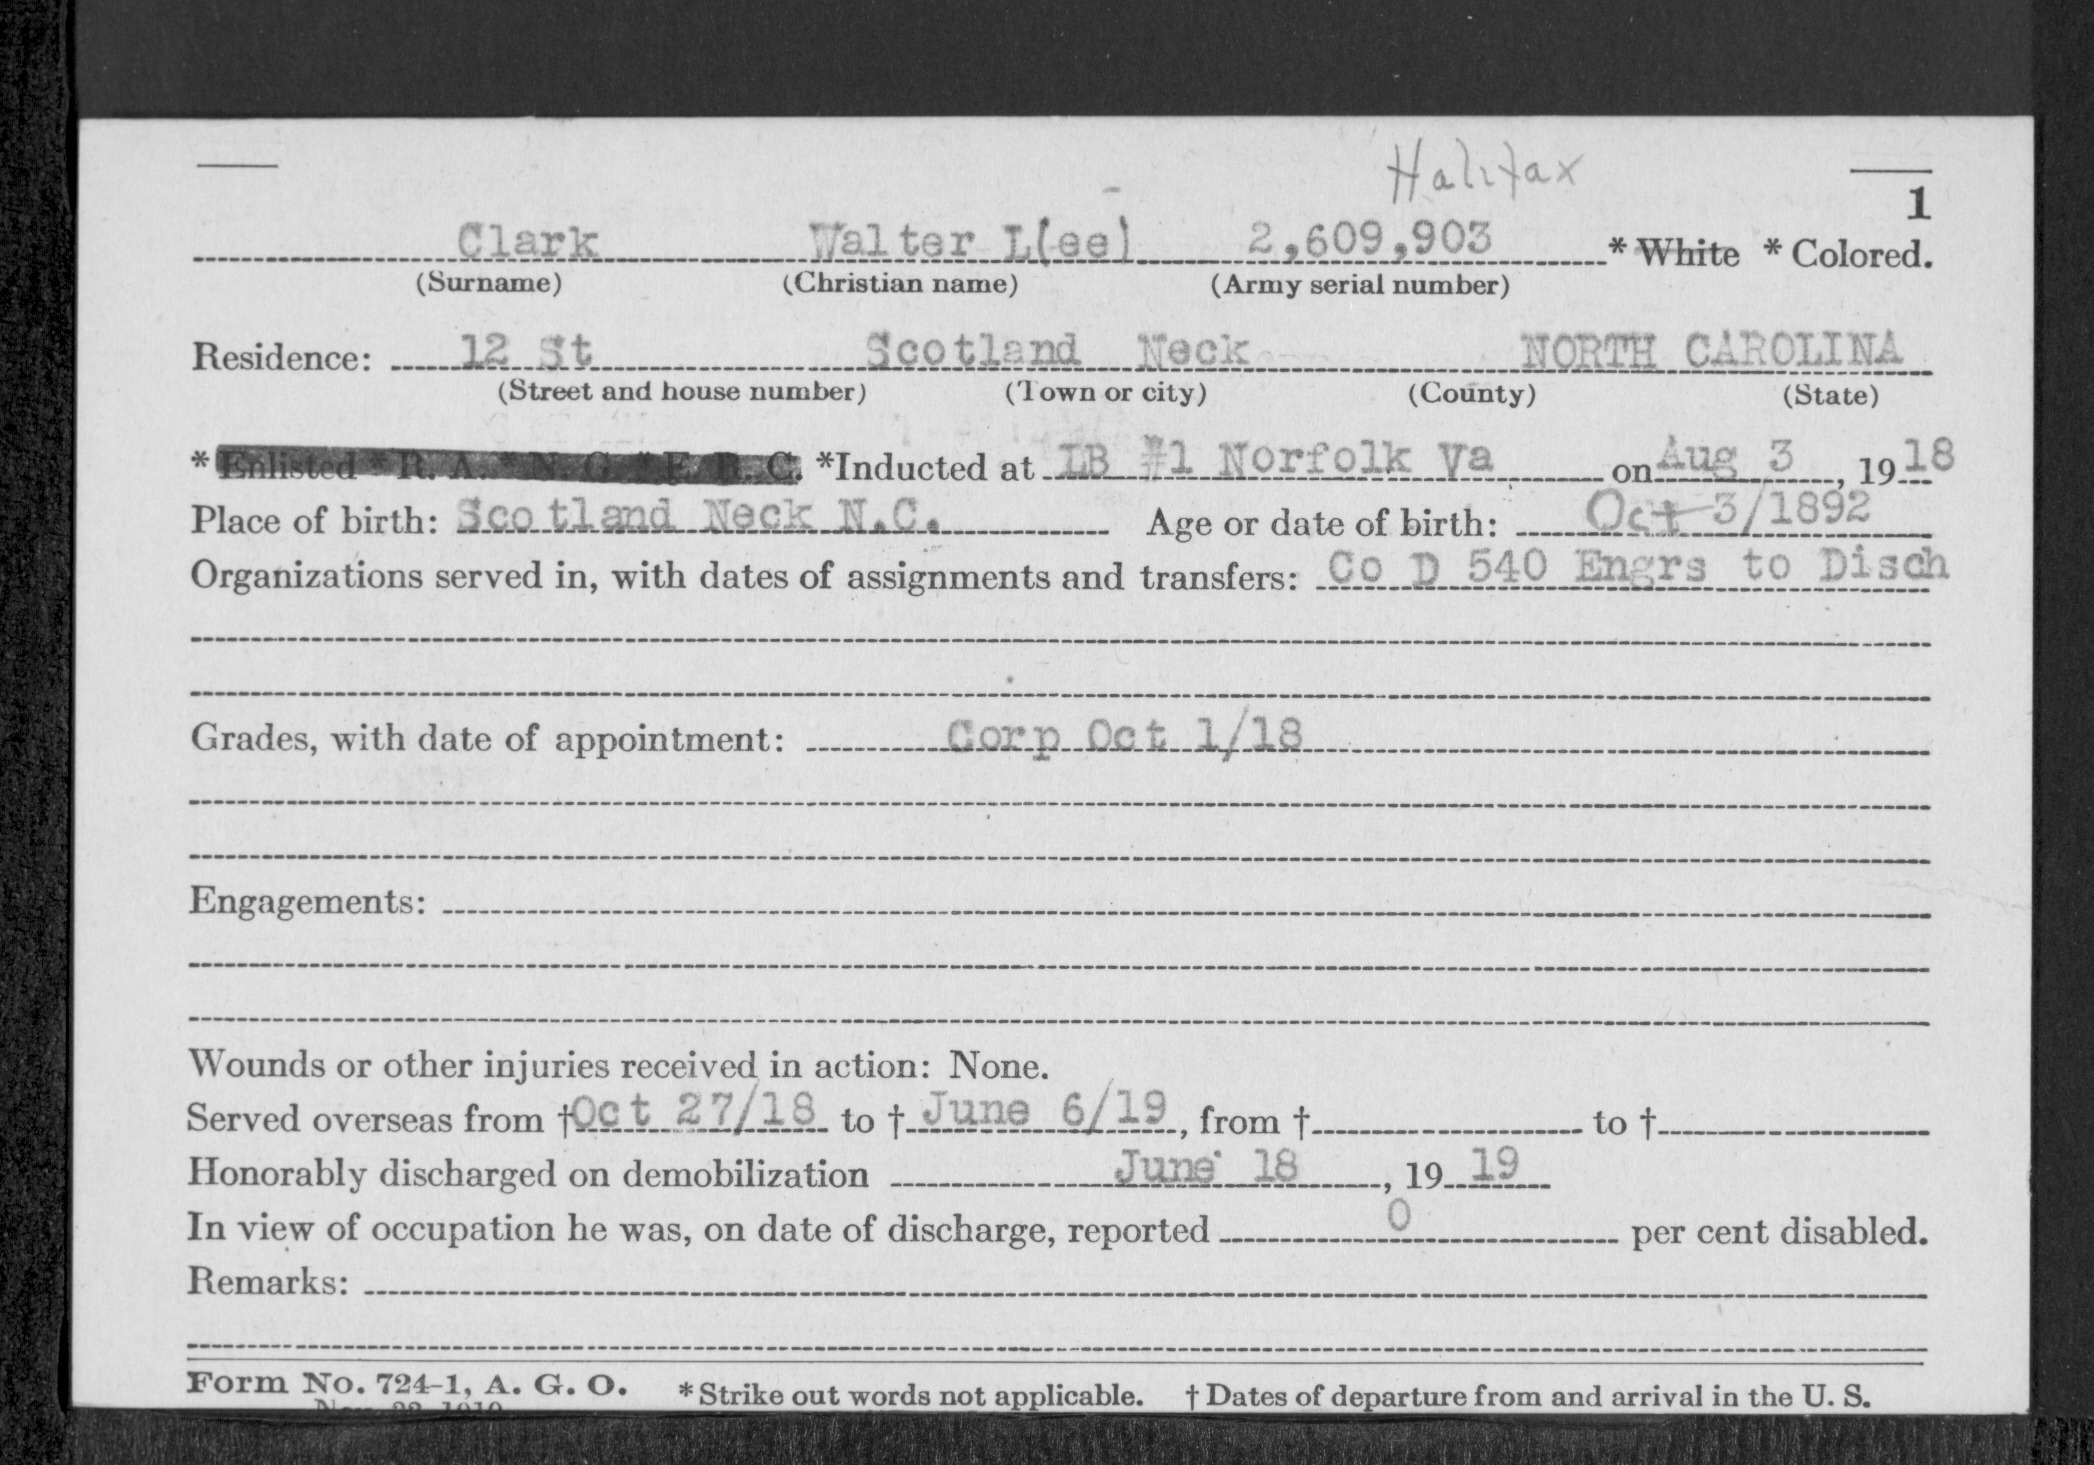 Halifax
1
Clark Walter L(ee) 2,609,903 * White * Colored.
(Surname) (Christian name) (Army serial number)
Residence: 12 St Scotland Neck NORTH CAROLINA
(Street and house number) (Town or city) (County) (State)
* Enlisted * R. A. * N. G. * E. R. C. *Inducted at LB #1 Norfolk Va on Aug 3, 1918
Place of birth: Scotland Neck N.C. Age or date of birth: Oct 3/1892
Organizations served in, with dates of assignments and transfers: Co D 540 Engrs to Disch
Grades, with date of appointment: Corp Oct 1/18
Engagements:
Wounds or other injuries received in action: None.
Served overseas from †Oct 27/18 to † June 6/19, from † to †
Honorably discharged on demobilization June 18, 19 19
In view of occupation he was, on date of discharge, reported 0 per cent disabled.
Remarks:
Form No. 724-1, A. G. O. *Strike out words not applicable. † Dates of departure from and arrival in the U. S.